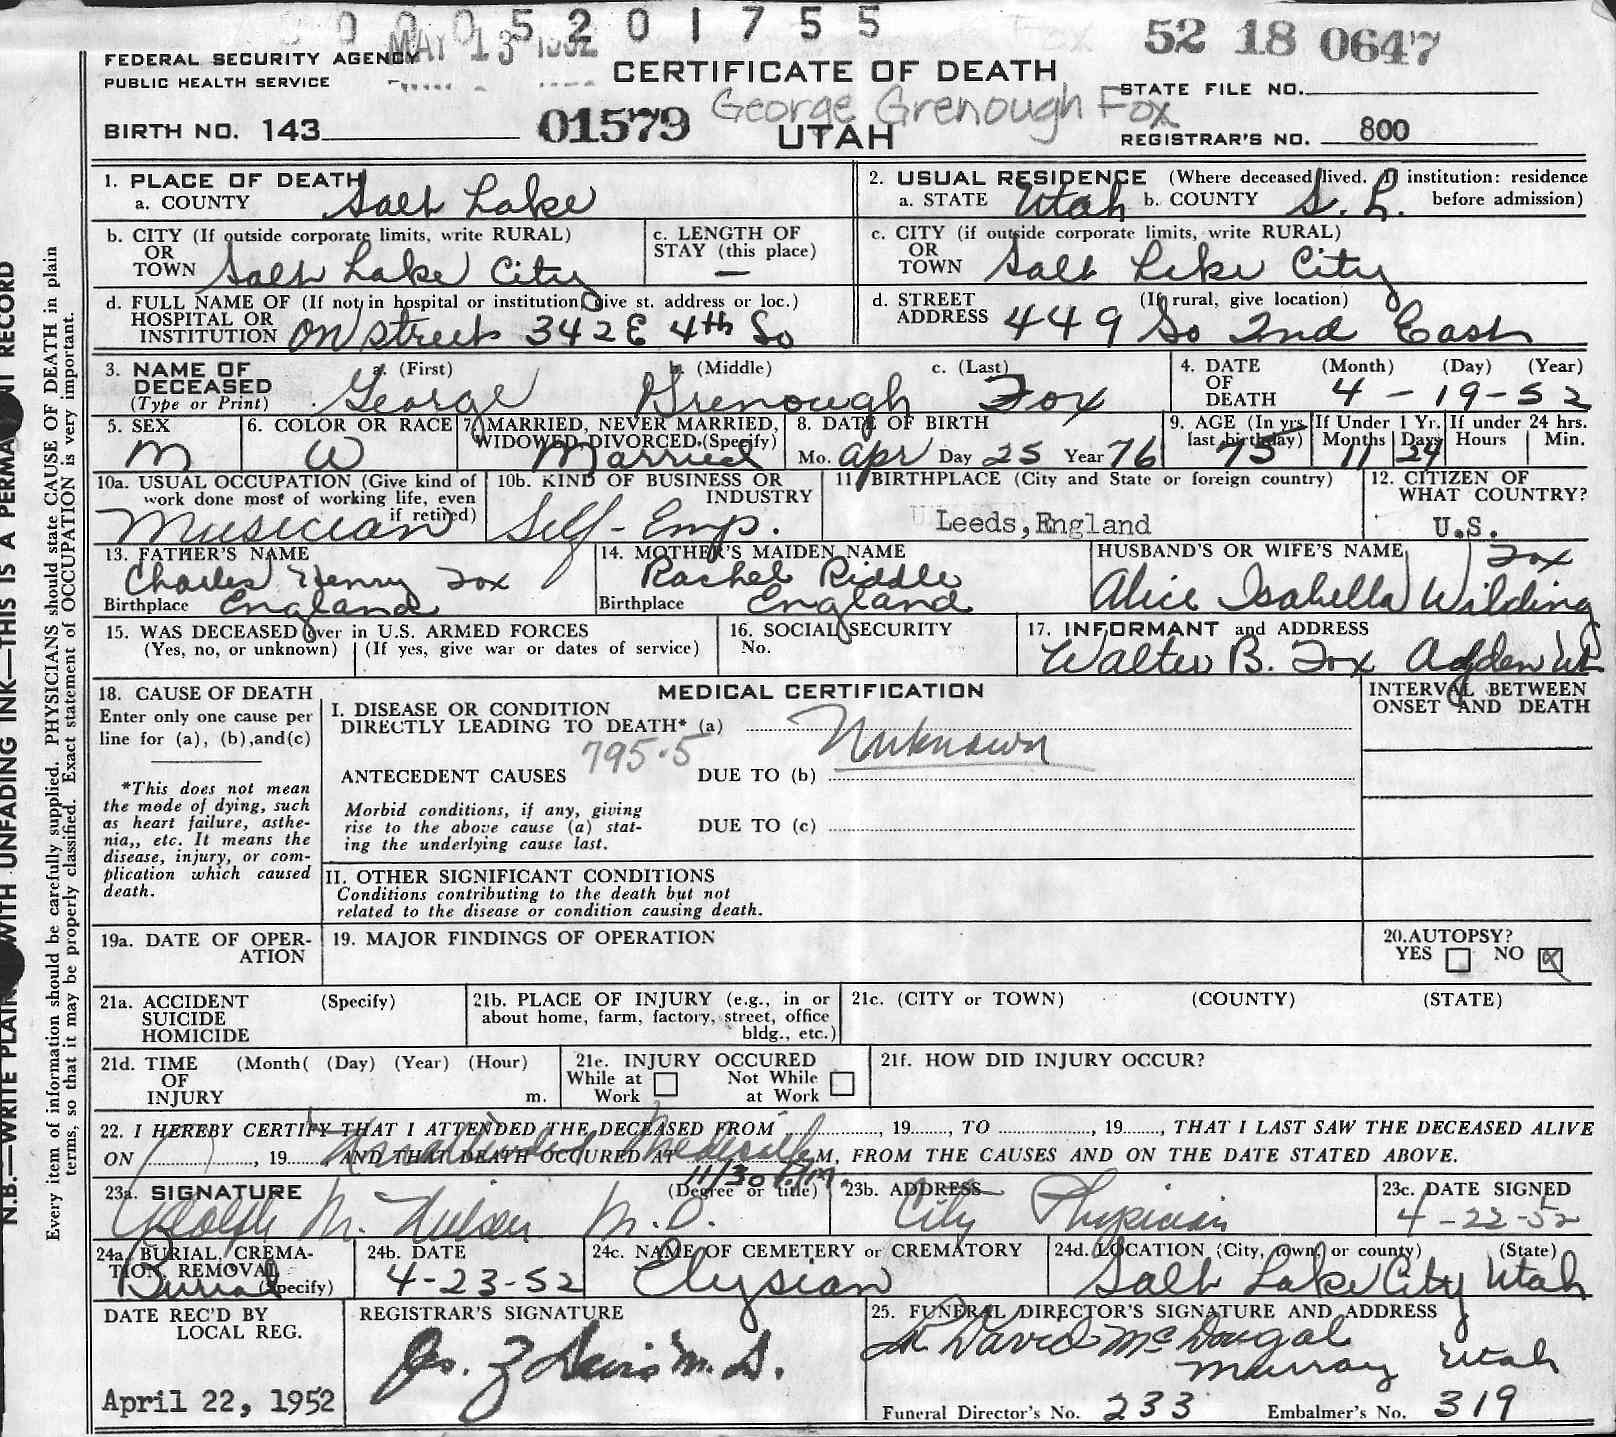 0 0 0 5 2 0 1 7 5 5
MAY 13 1952
52 18 0647
FEDERAL SECURITY AGENCY
PUBLIC HEALTH SERVICE
CERTIFICATE OF DEATH
STATE FILE NO.
George Grenough Fox
BIRTH NO. 143
01579
UTAH
REGISTRAR'S NO. 800
1. PLACE OF DEATH
a. COUNTY Salt Lake
2. USUAL RESIDENCE (Where deceased lived. If institution: residence before admission)
a. STATE Utah b. COUNTY S. L.
b. CITY (If outside corporate limits, write RURAL)
OR
TOWN Salt Lake City
c. LENGTH OF
STAY (this place)
—
c. CITY (if outside corporate limits, write RURAL)
OR
TOWN Salt Lake City
d. FULL NAME OF (If not in hospital or institution, give st. address or loc.)
HOSPITAL OR
INSTITUTION On street 342 E 4th So
d. STREET (If rural, give location)
ADDRESS 449 So 2nd East
3. NAME OF
DECEASED
(Type or Print)
a. (First) b. (Middle) c. (Last)
George Grenough Fox
4. DATE (Month) (Day) (Year)
OF
DEATH 4 - 19 - 52
5. SEX
M
6. COLOR OR RACE
W
7. MARRIED, NEVER MARRIED,
WIDOWED, DIVORCED. (Specify)
Married
8. DATE OF BIRTH
Mo. Apr Day 25 Year 76
9. AGE (In yrs.
last birthday)
75
If Under 1 Yr.
Months Days
11 24
If under 24 hrs.
Hours Min.
10a. USUAL OCCUPATION (Give kind of
work done most of working life, even
if retired)
Musician
10b. KIND OF BUSINESS OR
INDUSTRY
Self-Emp.
11. BIRTHPLACE (City and State or foreign country)
Leeds, England
12. CITIZEN OF
WHAT COUNTRY?
U.S.
13. FATHER'S NAME
Charles Henry Fox
Birthplace England
14. MOTHER'S MAIDEN NAME
Rachel Riddle
Birthplace England
HUSBAND'S OR WIFE'S NAME
Fox
Alice Isabella Wilding
15. WAS DECEASED over in U.S. ARMED FORCES
(Yes, no, or unknown) (If yes, give war or dates of service)
16. SOCIAL SECURITY
No.
17. INFORMANT and ADDRESS
Walter B. Fox Ogden Ut
18. CAUSE OF DEATH
Enter only one cause per
line for (a), (b),and(c)
*This does not mean
the mode of dying, such
as heart failure, asthe-
nia,, etc. It means the
disease, injury, or com-
plication which caused
death.
MEDICAL CERTIFICATION
I. DISEASE OR CONDITION
DIRECTLY LEADING TO DEATH* (a) Unknown
795.5
ANTECEDENT CAUSES DUE TO (b)
Morbid conditions, if any, giving
rise to the above cause (a) stat-
ing the underlying cause last.
DUE TO (c)
II. OTHER SIGNIFICANT CONDITIONS
Conditions contributing to the death but not
related to the disease or condition causing death.
INTERVAL BETWEEN
ONSET AND DEATH
19a. DATE OF OPER-
ATION
19. MAJOR FINDINGS OF OPERATION
20. AUTOPSY?
YES NO X
21a. ACCIDENT (Specify)
SUICIDE
HOMICIDE
21b. PLACE OF INJURY (e.g., in or
about home, farm, factory, street, office
bldg., etc.)
21c. (CITY or TOWN) (COUNTY) (STATE)
21d. TIME (Month( (Day) (Year) (Hour)
OF
INJURY m.
21e. INJURY OCCURED
While at Work Not While at Work
21f. HOW DID INJURY OCCUR?
22. I HEREBY CERTIFY THAT I ATTENDED THE DECEASED FROM , 19......, TO , 19......, THAT I LAST SAW THE DECEASED ALIVE
ON , 19......, AND THAT DEATH OCCURED AT M, FROM THE CAUSES AND ON THE DATE STATED ABOVE.
Unattended Medically
11/30 P.M.
23a. SIGNATURE (Degree or title)
Adolph M. Nielsen M.D.
23b. ADDRESS
City Physician
23c. DATE SIGNED
4-22-52
24a. BURIAL, CREMA-
TION, REMOVAL
(Specify)
Burial
24b. DATE
4-23-52
24c. NAME OF CEMETERY or CREMATORY
Elysian
24d. LOCATION (City, town, or county) (State)
Salt Lake City Utah
DATE REC'D BY
LOCAL REG.
April 22, 1952
REGISTRAR'S SIGNATURE
Jos. Z Davis M. D.
25. FUNERAL DIRECTOR'S SIGNATURE AND ADDRESS
David McDougal
Murray Utah
Funeral Director's No. 233 Embalmer's No. 319
Every item of information should be carefully supplied. PHYSICIANS should state CAUSE OF DEATH in plain
terms, so that it may be properly classified. Exact statement of OCCUPATION is very important.
N.B.—WRITE PLAINLY WITH UNFADING INK—THIS IS A PERMANENT RECORD